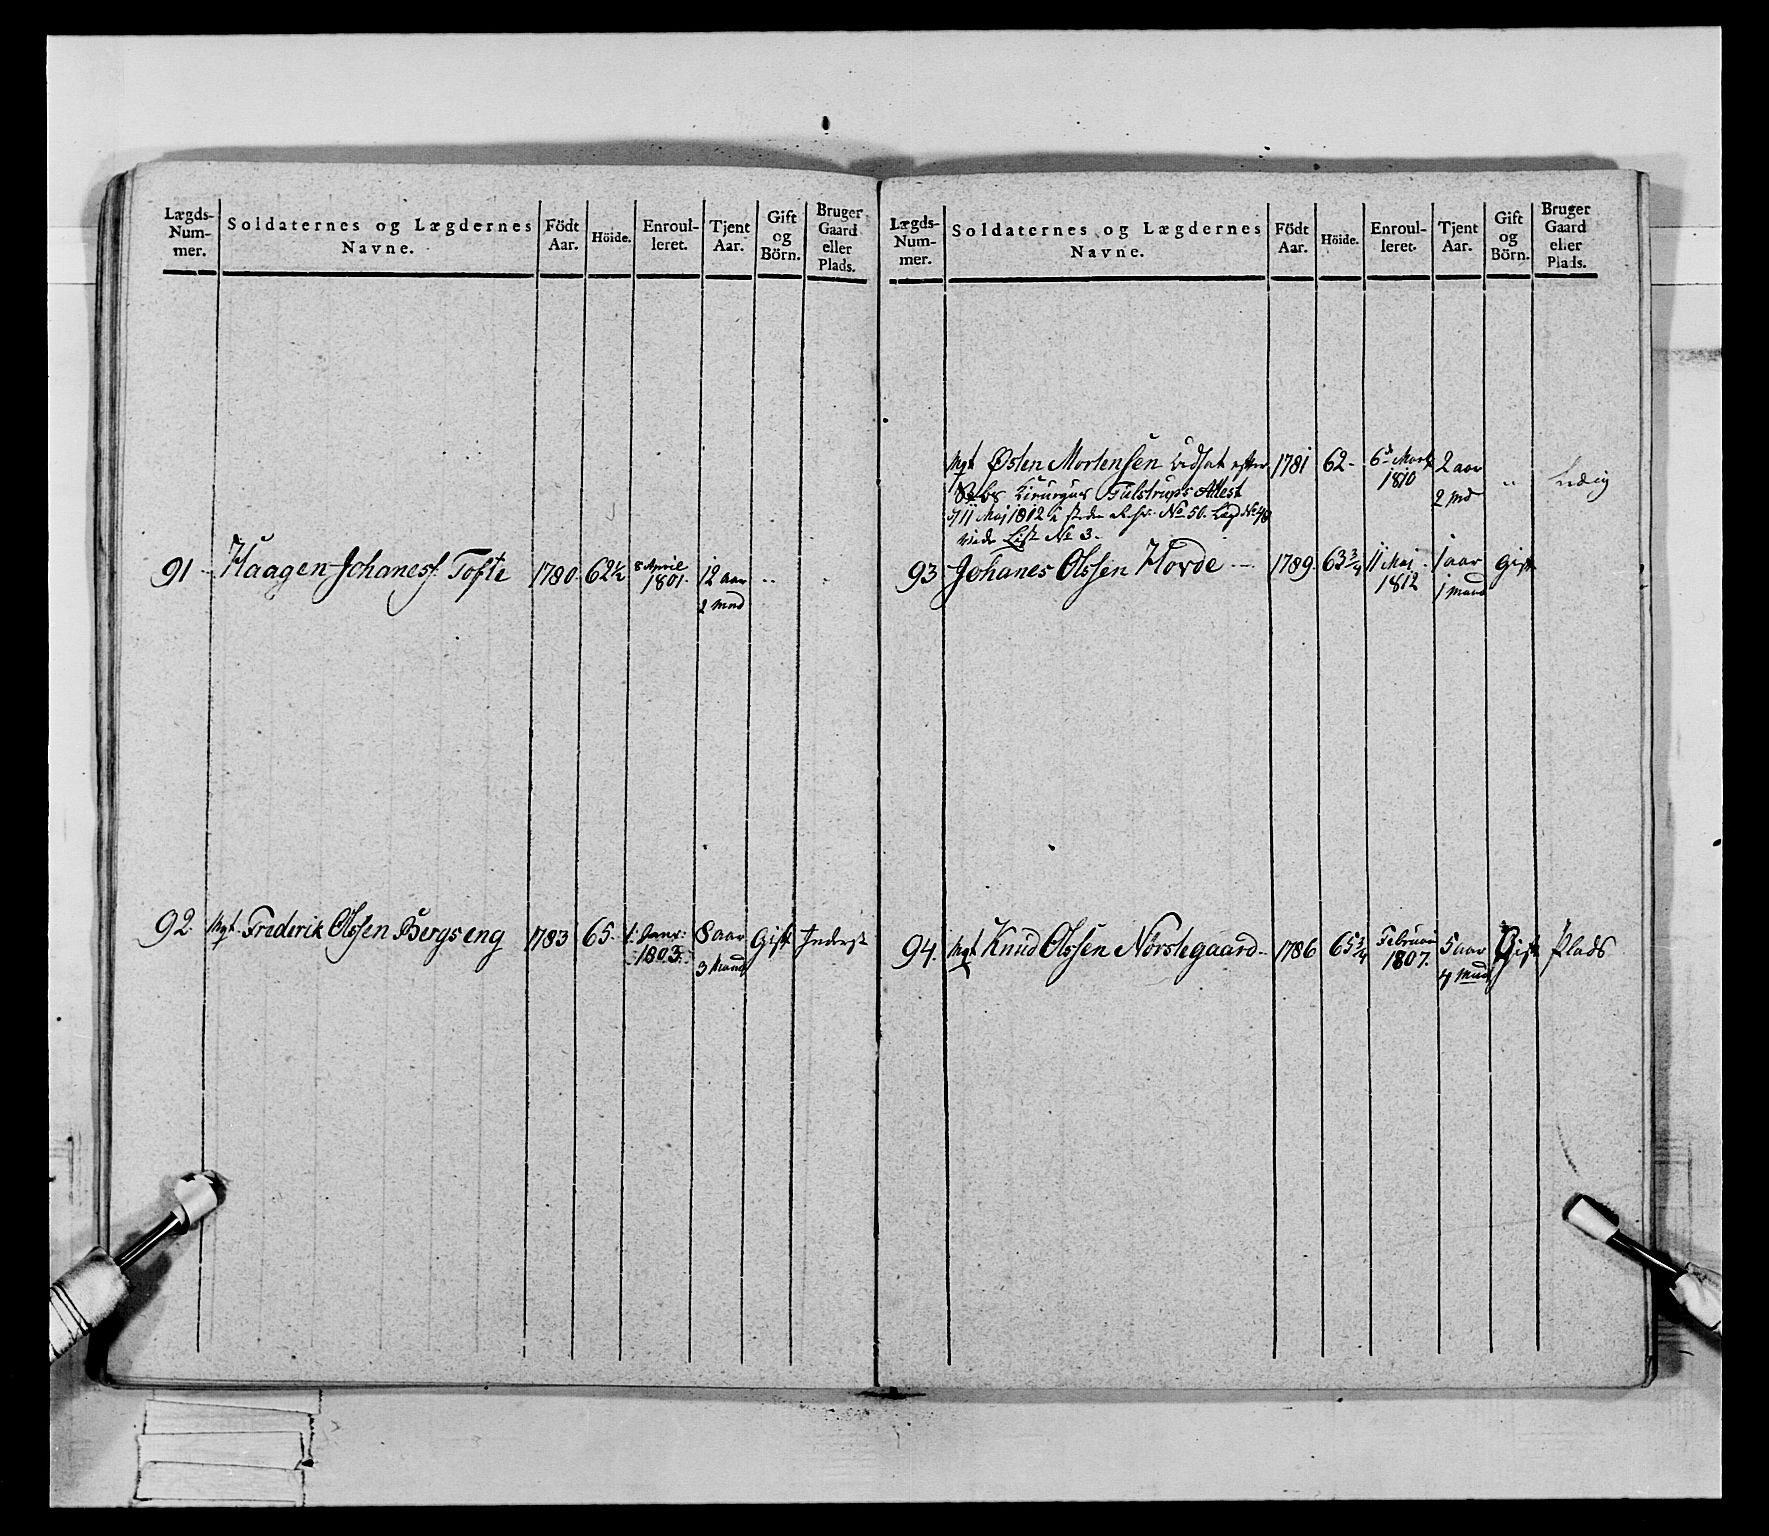 Lægds-Num-mer. Soldaternes og Lægdernes Navne. Födt Aar. Höide. Enroul-leret. Tjent Aar. Gift og Börn. Bruger Gaard eller Plads.
91 Haagen Johaness. Tofte 1780 62½ 8 April 1801 12 aar 2 Mnd " "
92. Mgt Frederik Olssen Bergseng 1783 65 1 Janr: 1803. 8 aar 3 Mand Gift Inderst
Lægds-Num-mer. Soldaternes og Lægdernes Navne. Födt Aar. Höide. Enroul-leret. Tjent Aar. Gift og Börn. Bruger Gaard eller Plads.
Mgt Østen Mortensen Udsat efter 1781 62 6d Marts 1810 2 aar 2 Md " Ledig
Chirurgus Tulstrups Attest
11 Maj 1812 No 50. Lægd No 48
vide Liste No 3.
93 Johanes Olssen Hovde 1789 63¾ 11 Maj 1812 1 aar 1 Mand Gift
94. Mgt Knud Olssen Nörstegaard 1786 65¾ Februar 1807. 5 aar 4 Mnd Gift Plads